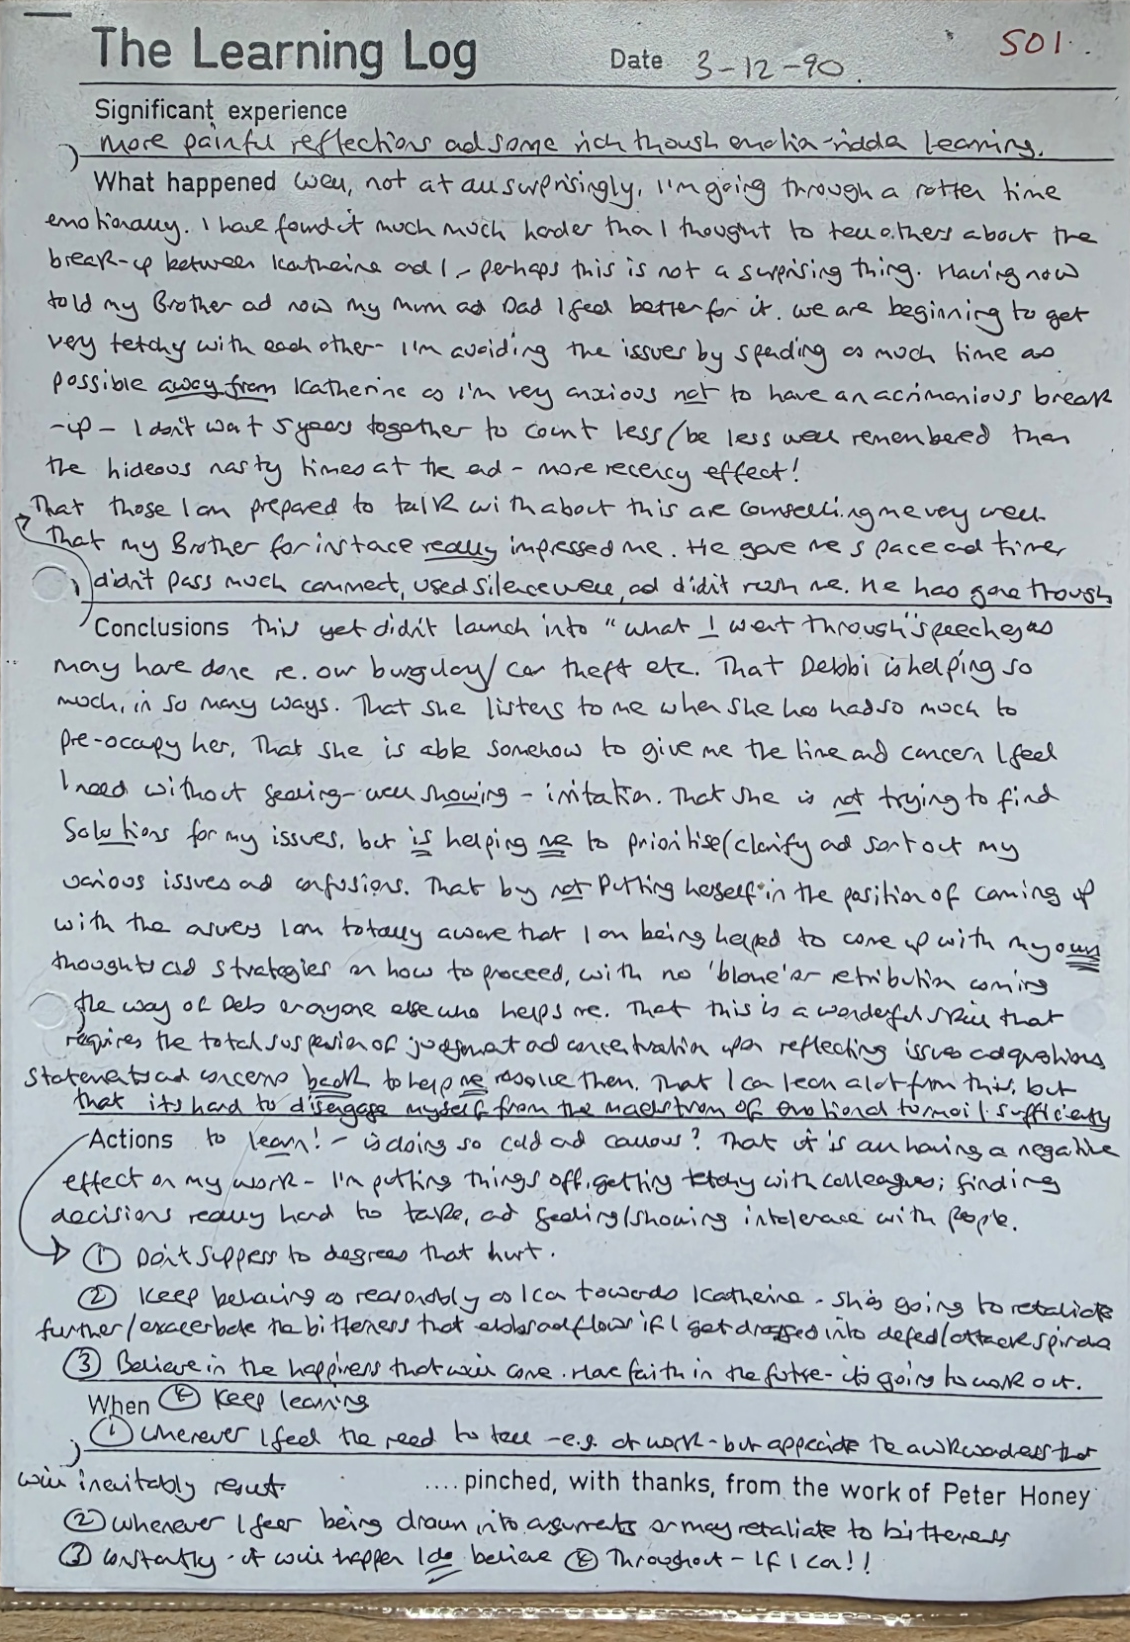 The Learning Log Date 3-12-90. S01.
Significant experience
more painful reflections and some rich though emotion-ridden learning.
What happened Well, not at all surprisingly, I'm going through a rotten time
emotionally. I have found it much much harder than I thought to tell others about the
break-up between Katherine and I - perhaps this is not a surprising thing. Having now
told my Brother and now my Mum and Dad I feel better for it. We are beginning to get
very tetchy with each other - I'm avoiding the issues by spending as much time as
possible away from Katherine as I'm very anxious not to have an acrimonious break
-up - I don't want 5 years together to count less/be less well remembered than
the hideous nasty times at the end - more recency effect!
That those I am prepared to talk with about this are counselling me very well.
That my Brother for instance really impressed me. He gave me space and time,
didn't pass much comment, used silence well, and didn't rush me. He has gone through
Conclusions this yet didn't launch into "what I went through" speeches as
many have done re. our burgulary/car theft etc. That Debbi is helping so
much, in so many ways. That she listens to me when she has had so much to
pre-occupy her, That she is able somehow to give me the time and concern I feel
I need without feeling - well showing - irritation. That she is not trying to find
Solutions for my issues, but is helping me to prioritise/clarify and sort out my
various issues and confusions. That by not putting herself in the position of coming up
with the answers I am totally aware that I am being helped to come up with my own
thoughts and strategies on how to proceed, with no 'blame' or retribution coming
the way of Debs or anyone else who helps me. That this is a wonderful skill that
requires the total suspension of judgement and concentration upon reflecting issues and questions
statements and concerns back to help me resolve them. That I can learn a lot from this, but
that its hard to disengage myself from the maelstrom of emotional turmoil sufficiently
Actions to learn! - is doing so cold and callous? That it is all having a negative
effect on my work - I'm putting things off, getting tetchy with colleagues; finding
decisions really hard to take, and feeling/showing intolerance with people.
① Don't suppress to degrees that hurt.
② Keep behaving as reasonably as I can towards Katherine. She's going to retaliate
further/exacerbate the bitterness that ebbs and flows if I get dragged into defend/attack spirals
③ Believe in the happiness that will come. Have faith in the future - its going to work out.
When ④ Keep learning
① Whenever I feel the need to tell - e.g. at work - but appreciate the awkwardness that
will inevitably result. ....pinched, with thanks, from the work of Peter Honey
② Whenever I fear being drawn into arguments or may retaliate to bitterness
③ Constantly - it will happen I do believe ④ Throughout - If I can!!